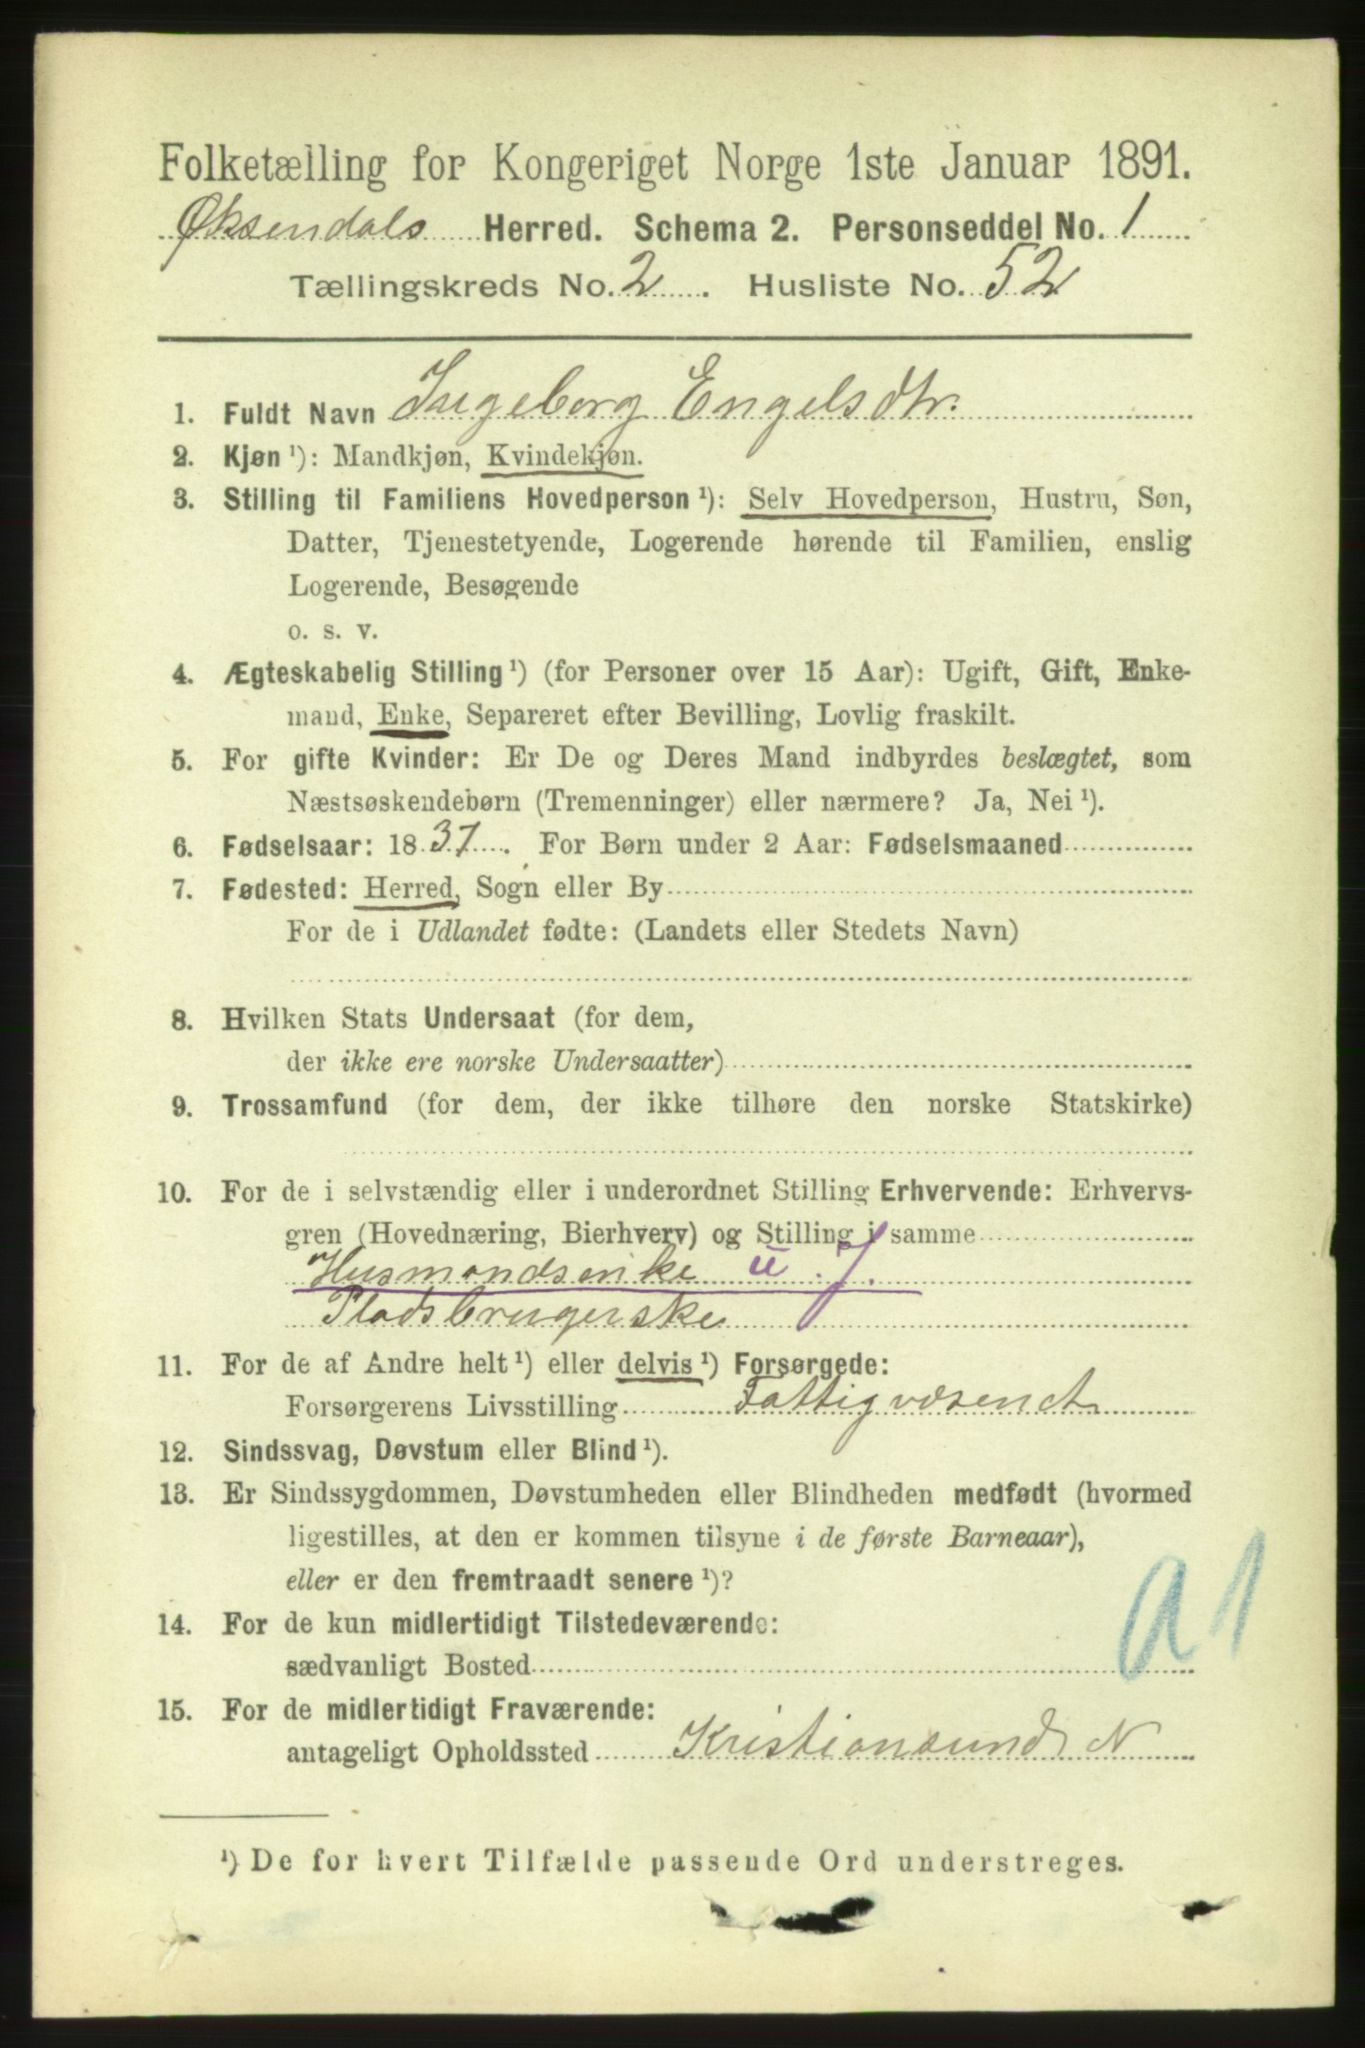 Folketælling for Kongeriget Norge 1ste Januar 1891.
Øksendals Herred. Schema 2. Personseddel No. 1
Tællingskreds No. 2. Husliste No. 52
1. Fuldt Navn Ingeborg Engelsdtr.
2. Kjøn ¹): Mandkjøn, Kvindekjøn.
3. Stilling til Familiens Hovedperson ¹): Selv Hovedperson, Hustru, Søn,
Datter, Tjenestetyende, Logerende hørende til Familien, enslig
Logerende, Besøgende
o. s. v.
4. Ægteskabelig Stilling ¹) (for Personer over 15 Aar): Ugift, Gift, Enke-
mand, Enke, Separeret efter Bevilling, Lovlig fraskilt.
5. For gifte Kvinder: Er De og Deres Mand indbyrdes beslægtet, som
Næstsøskendebørn (Tremenninger) eller nærmere? Ja, Nei ¹).
6. Fødselsaar: 1837. For Børn under 2 Aar: Fødselsmaaned
7. Fødested: Herred, Sogn eller By
For de i Udlandet fødte: (Landets eller Stedets Navn)
8. Hvilken Stats Undersaat (for dem,
der ikke ere norske Undersaatter)
9. Trossamfund (for dem, der ikke tilhøre den norske Statskirke)
10. For de i selvstændig eller i underordnet Stilling Erhvervende: Erhvervs-
gren (Hovednæring, Bierhverv) og Stilling i samme
Husmandsenke u. J.
Pladsbrugerske
11. For de af Andre helt ¹) eller delvis ¹) Forsørgede:
Forsørgerens Livsstilling Fattigvæsenet
12. Sindssvag, Døvstum eller Blind ¹).
13. Er Sindssygdommen, Døvstumheden eller Blindheden medfødt (hvormed
ligestilles, at den er kommen tilsyne i de første Barneaar),
eller er den fremtraadt senere ¹)?
14. For de kun midlertidigt Tilstedeværende:
sædvanligt Bosted
15. For de midlertidigt Fraværende:
antageligt Opholdssted Kristiansund N
a 1
¹) De for hvert Tilfælde passende Ord understreges.